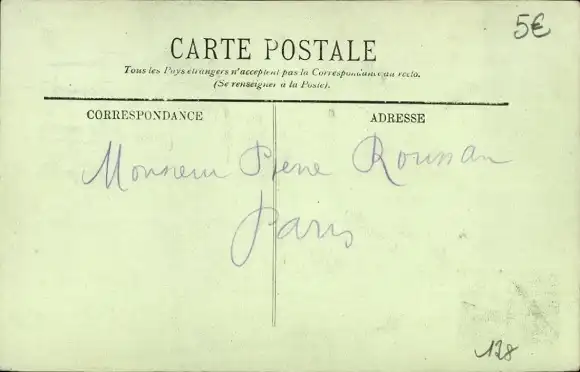 5€
CARTE POSTALE
Tous les Pays étrangers n'acceptent pas la Correspondance au recto.
(Se renseigner à la Poste).
CORRESPONDANCE
ADRESSE
Monsieur Pierre Roussan
Paris
128